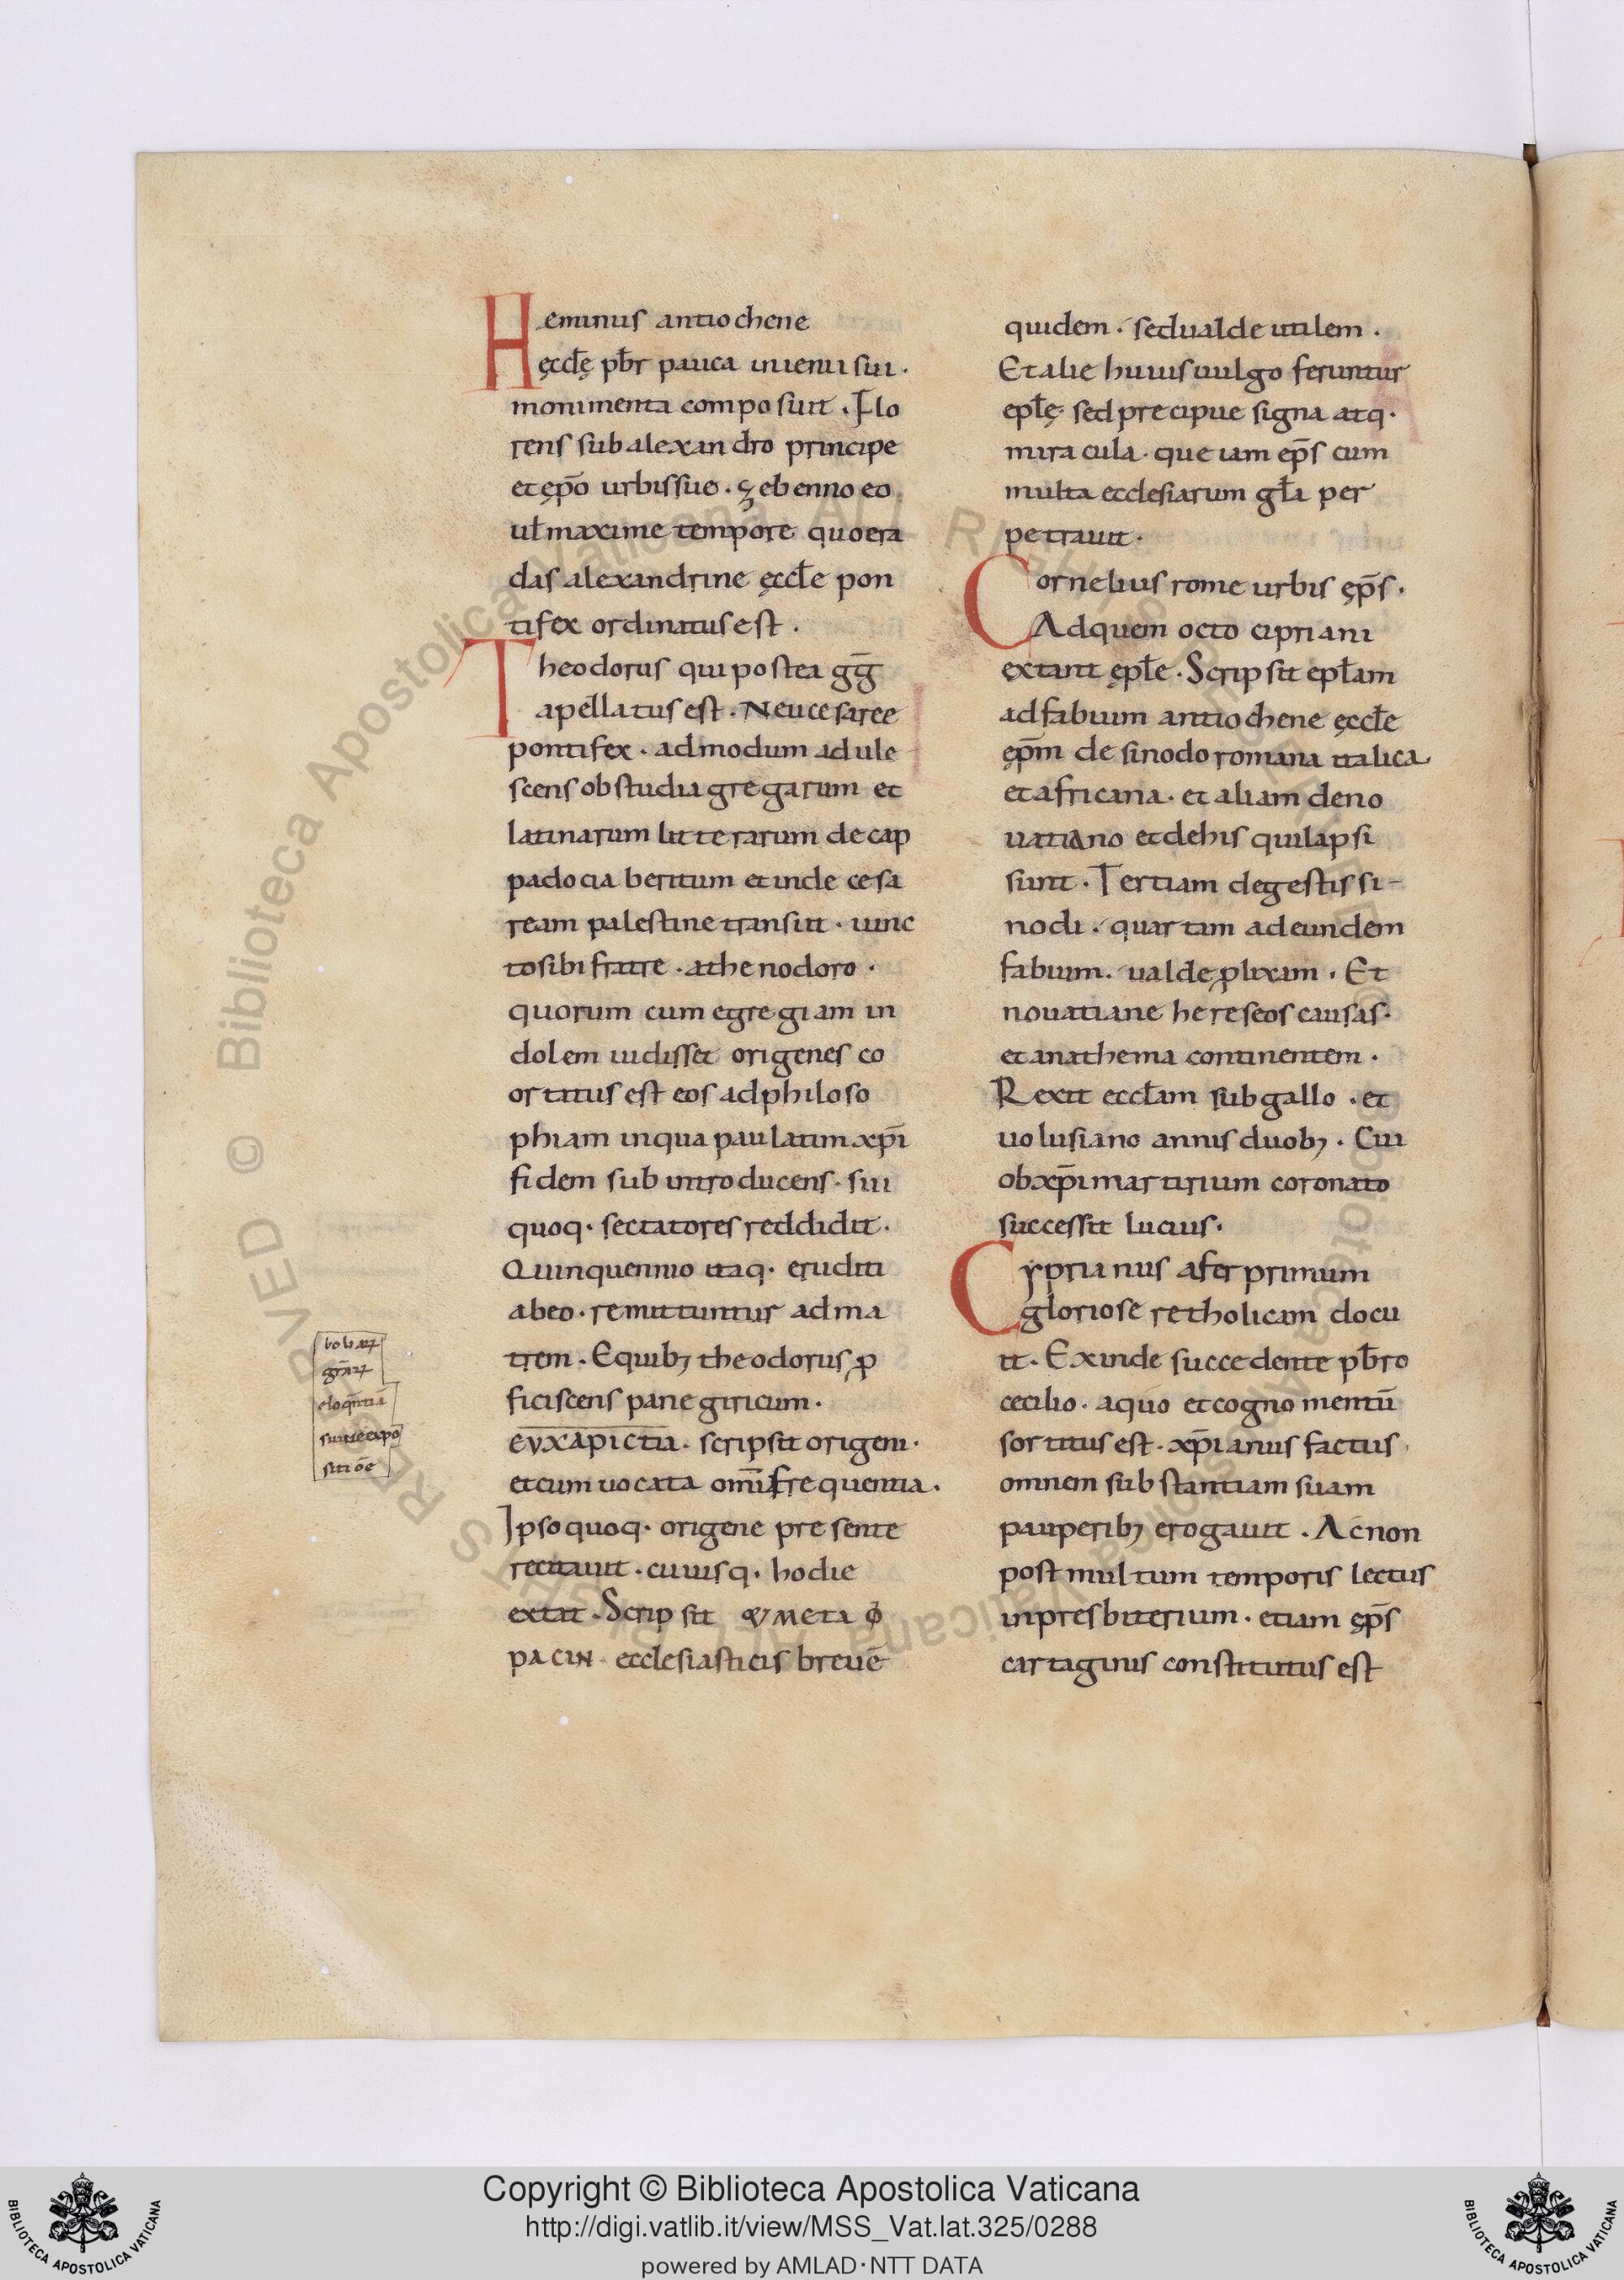 Heminus antiochene
ęccl̄ę pb̄r pauca inienii sui.
monimenta composuit. Flo
rens sub alexandro principe
et ęp̄o urbissue. ç ebenno eo
ul̄ maxime tempore quo era
das alexandrine ęccl̄e pon
tifex ordinatus est.
Theodorus qui postea gḡ
apellatus est. Neucesaree
pontifex. admodum adule
scens ob studia gregarum et
latinarum litterarum de cap
padocia beritum et inde cesa
ream palestine transiit. iunc
to sibi fratre. athenodoro.
quorum cum egregiam in
dolem uidisset origenes co
ortatus est eos ad philoso
phiam in qua paulatim xp̄i
fidem sub introducens. sui
quoq. sectatores reddidit.
Quinquennio itaq. eruditi
ab eo. remittuntur ad ma
trem. E quib; theodorus ꝓ
ficiscens panegiricum.
eyxapictia. scripsit origeni.
et cum uocata om̄i frequentia.
Ipso quoq. origene presente
recitauit. cuiusq. hodie
extat. Scripsit
pacin ecclesiasticis breuē
eloq̄ntiā
sitiōe
quidem. sed ualde utilem.
Et alie huius uulgo feruntur
epl̄ę. sed precipue signa atq.
miracula. que iam ep̄s cum
multa ecclesiarum gl̄a per
petrauit.
Cornelius rome urbis ęp̄s.
Ad quem octo cipriani
extant ępl̄e. Scripsit epl̄am
ad fabium antiochene ęccl̄e
ęp̄m de sinodo romana italica
et africana. et aliam de no
uatiano et de his qui lapsi
sunt. Tertiam de gestis si-
nodi. quartam ad eundem
fabium. ualde ꝓlixam. Et
nouatiane hereseos causas.
et anathema continentem.
Rexit eccl̄am sub gallo. et
uolusiano annis duob;. Cui
ob xp̄i martirium coronato
successit lucius.
Cyprianus afer primum
gloriose rethoricam docu
it. Exinde succedente pb̄ro
cecilio. a quo et cognomentū
sortitus est. xp̄ianus factus
omnem substantiam suam
pauperib; erogauit. Ac non
post multum temporis lectus
in presbiterium. etiam ęp̄s
cartaginis constitutus est
© Biblioteca Apostolica Vaticana
Copyright © Biblioteca Apostolica Vaticana
http://digi.vatlib.it/view/MSS_Vat.lat.325/0288
powered by AMLAD·NTT DATA
BIBLIOTECA APOSTOLICA VATICANA
BIBLIOTECA APOSTOLICA VATICANA